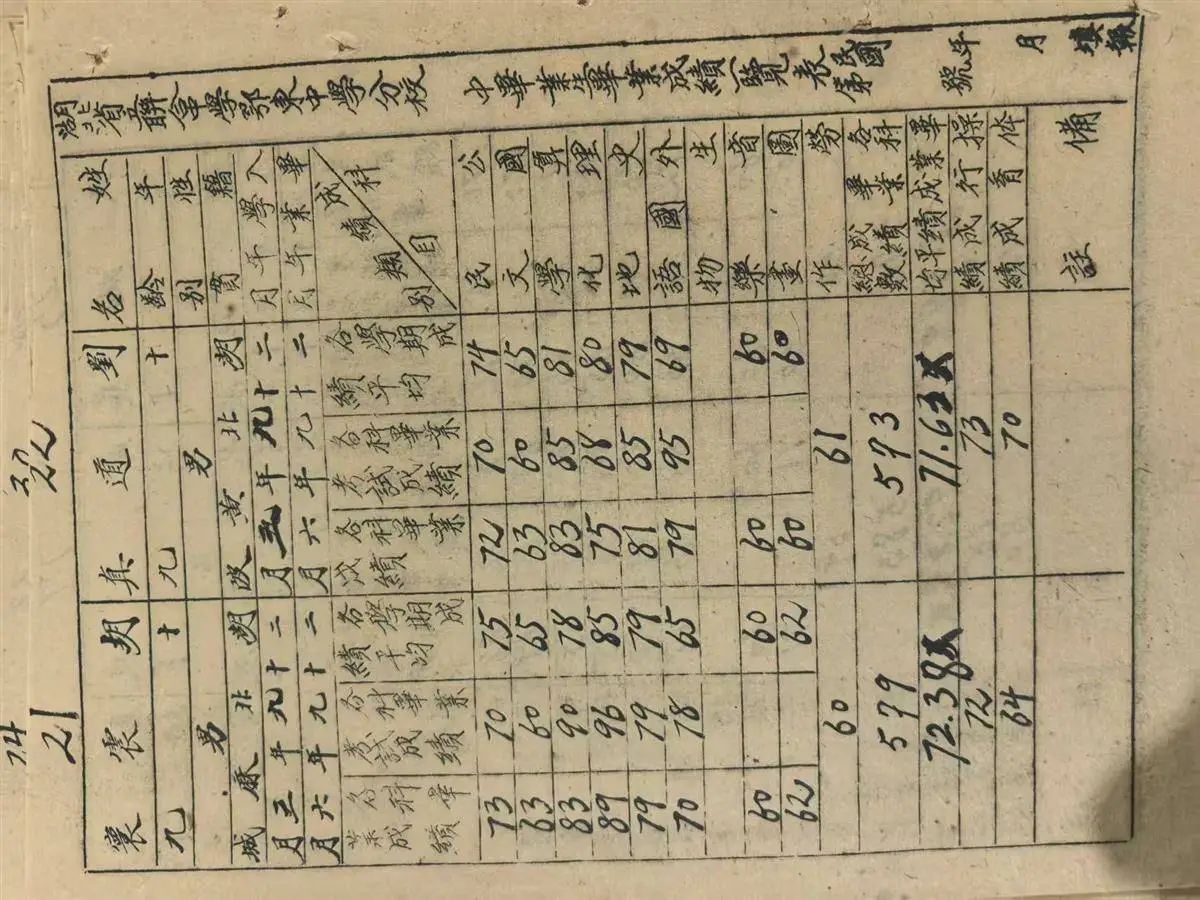 湖北省聯合中學鄂東中學分校 中畢業生畢業成績一覽表 民國 第 號 年 月 填報
22 21
姓名 劉道真 胡震寰
年齡 十九 十九
性別 男 男
籍貫 湖北黃陂 湖北麻城
入學年月 二十九年五月 二十九年五月
畢業年月 二十九年六月 二十九年六月
科目 成績類別 各學期成績平均 各科畢業考試成績 各科畢業成績 各學期成績平均 各科畢業考試成績 各科畢業成績
公民 74 70 72 75 70 73
國文 65 60 63 65 60 63
算學 81 85 83 78 90 83
理化 80 68 75 85 96 89
史地 79 85 81 79 79 79
外國語 69 95 79 65 78 70
生物
音樂 60 60 60 60
圖畫 60 60 62 62
勞作 61 60
各科畢業成績總數 573 579
畢業成績平均 71.63 72.38
操行成績 73 72
体育成績 70 64
備註